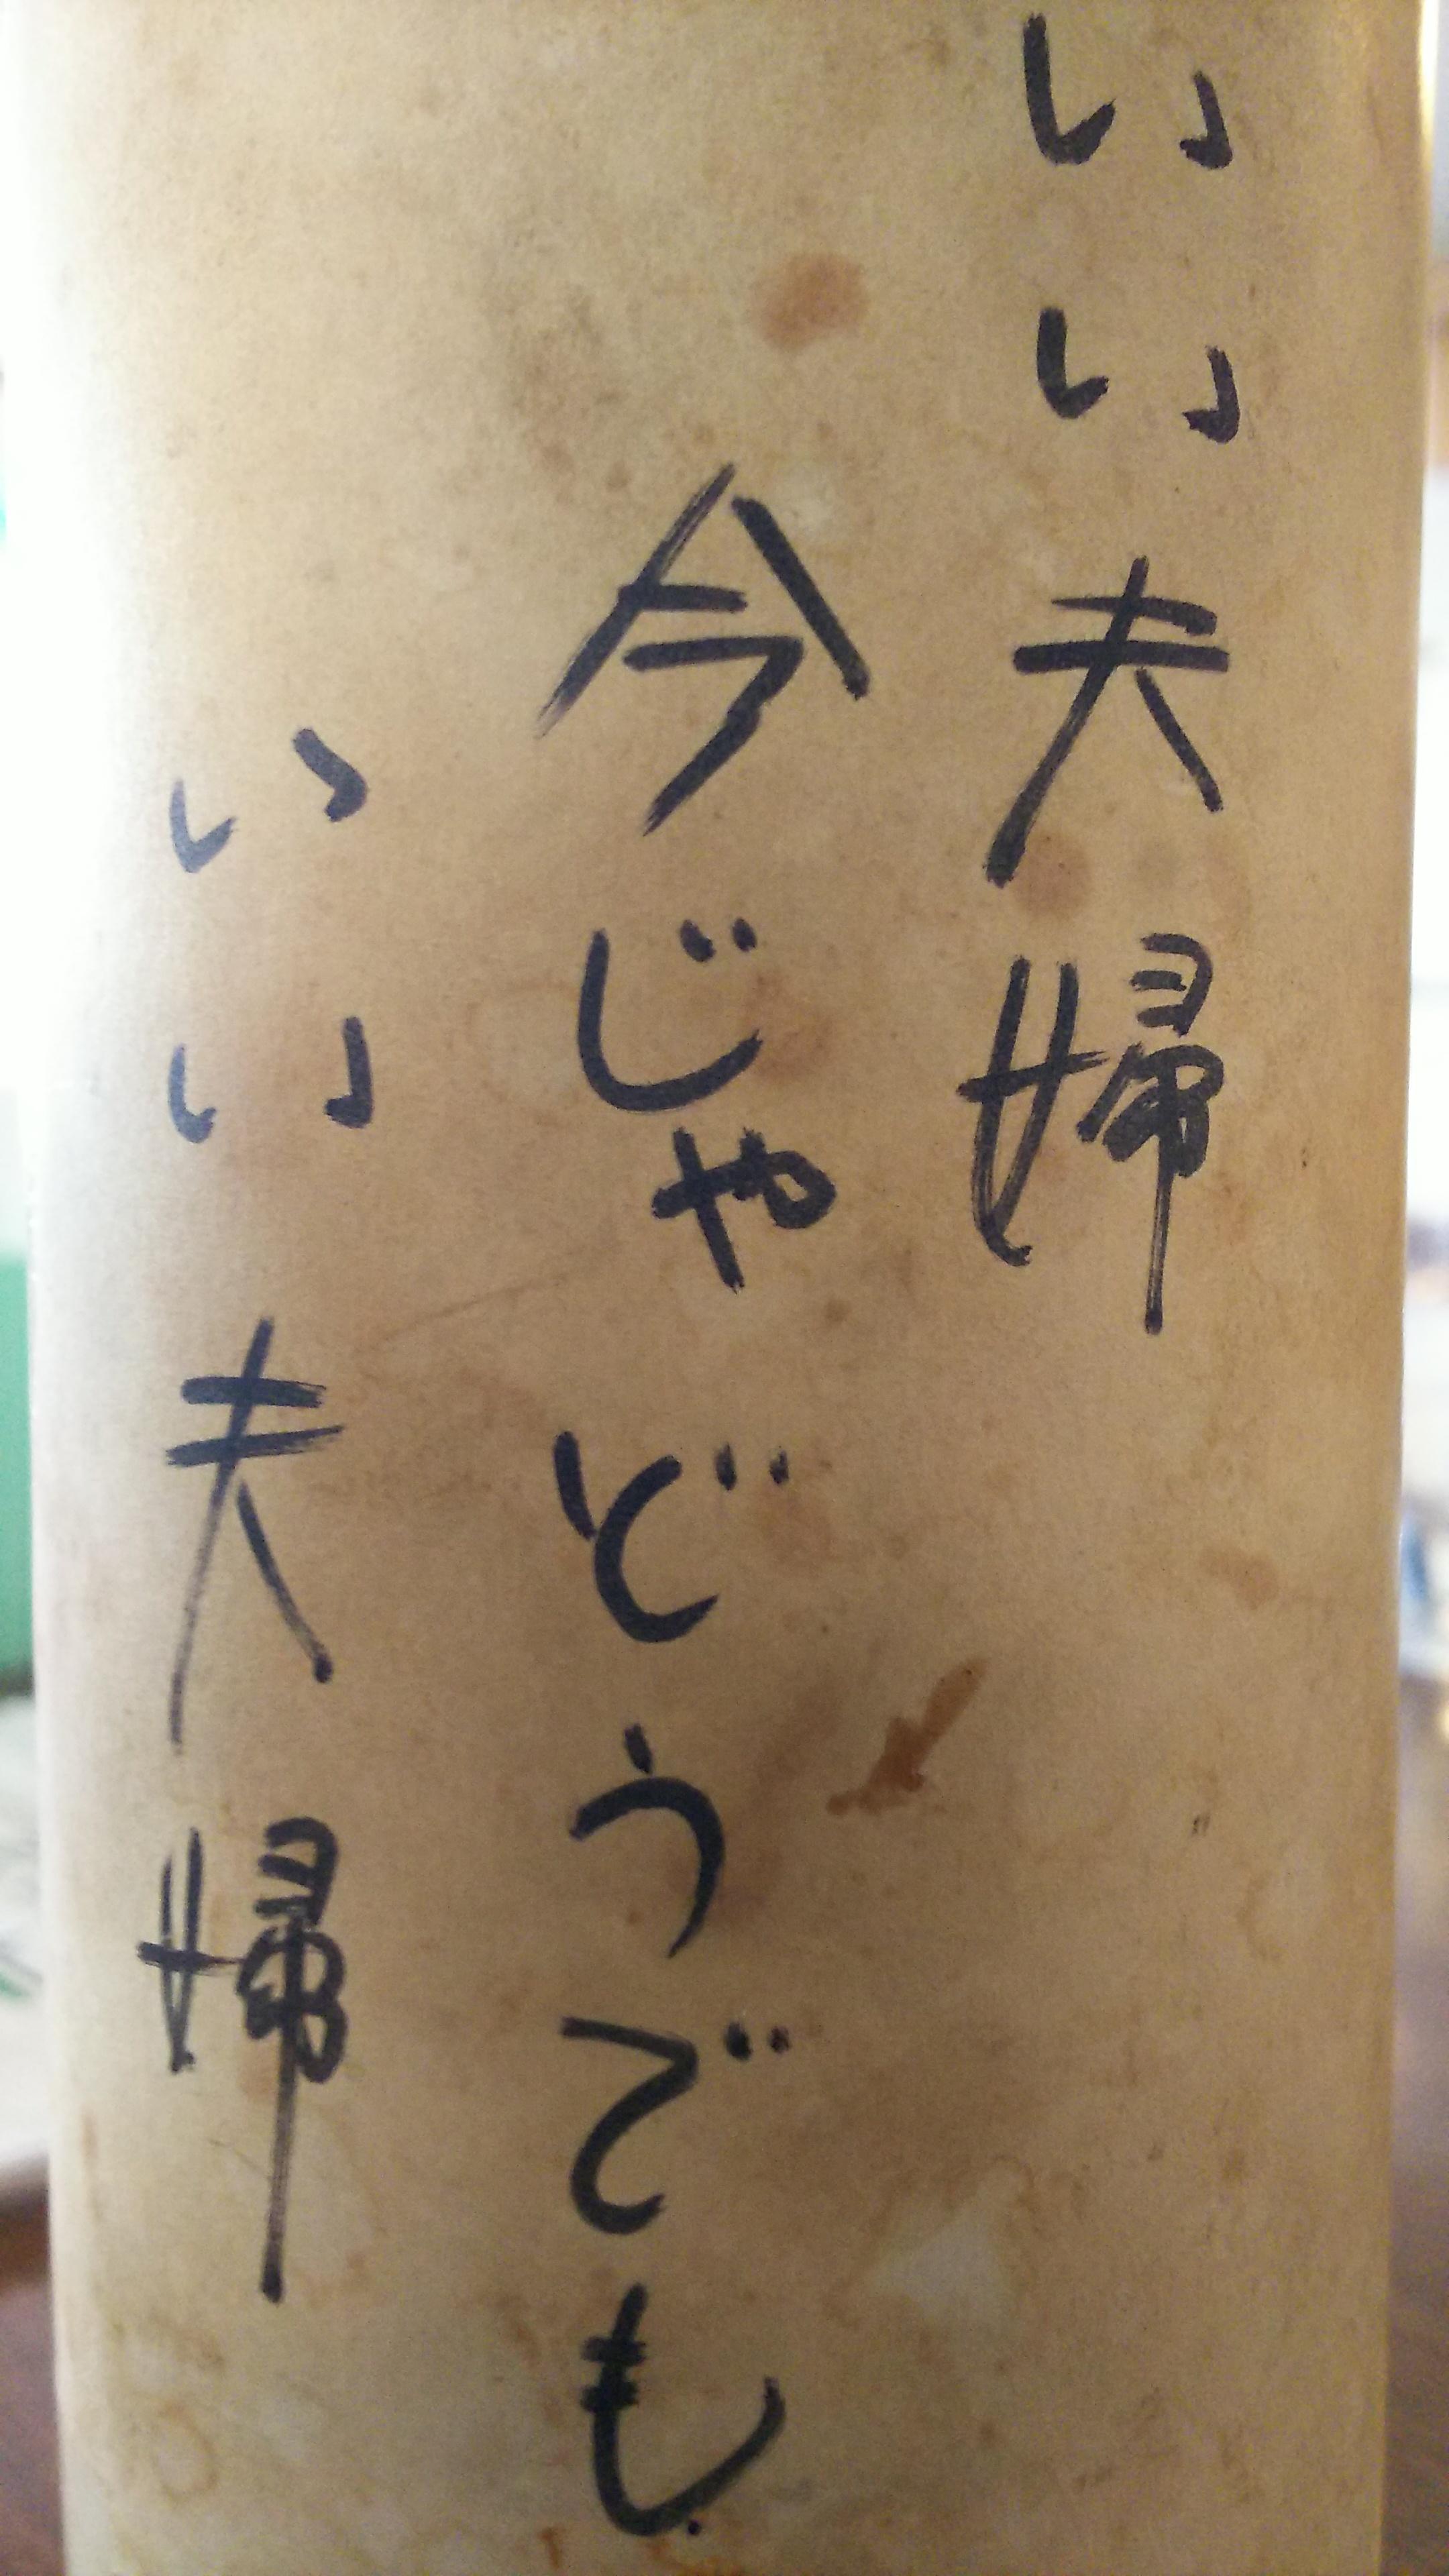 いい夫婦
今じゃどうでも
いい夫婦